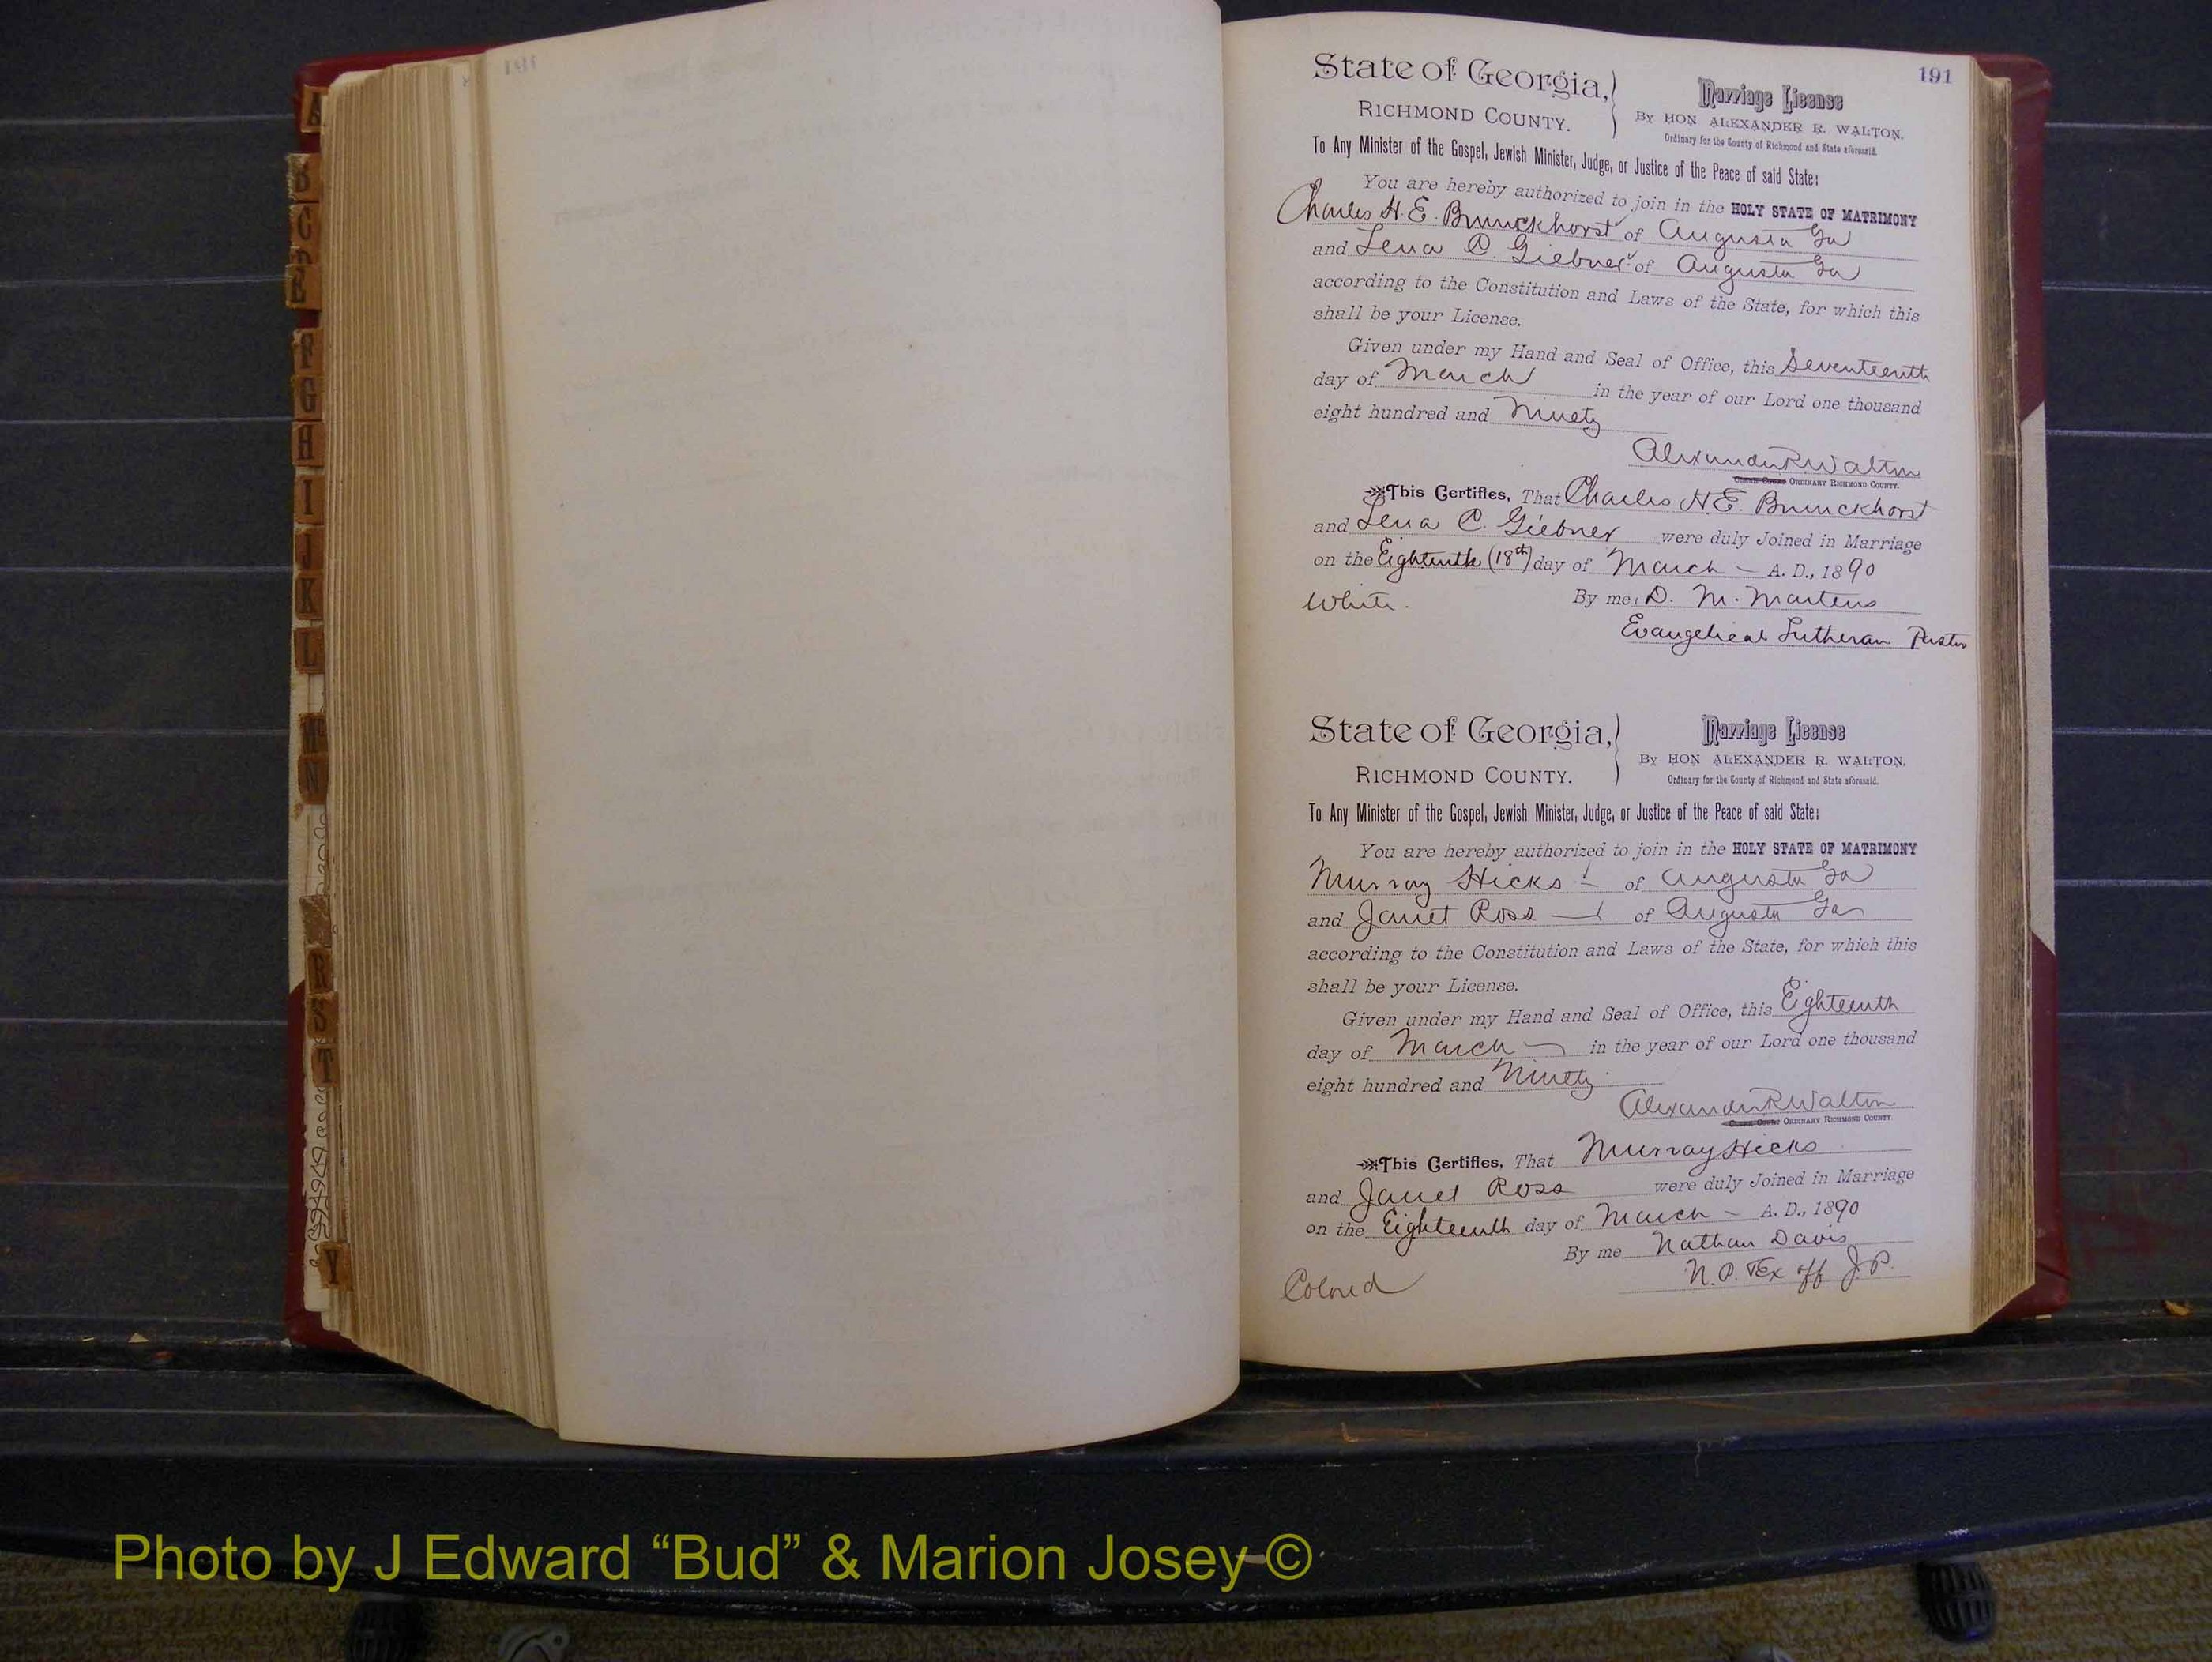 191
State of Georgia,
RICHMOND COUNTY.
Marriage License
By HON ALEXANDER R. WALTON,
Ordinary for the County of Richmond and State aforesaid.
To Any Minister of the Gospel, Jewish Minister, Judge, or Justice of the Peace of said State:
You are hereby authorized to join in the HOLY STATE OF MATRIMONY
Charles H. E. Brunckhorst of Augusta Ga
and Lena C. Giebner of Augusta Ga
according to the Constitution and Laws of the State, for which this
shall be your License.
Given under my Hand and Seal of Office, this Seventeenth
day of March in the year of our Lord one thousand
eight hundred and Ninety
Alexander R Walton
ORDINARY RICHMOND COUNTY.
This Certifies, That Charles H. E. Brunckhorst
and Lena C. Giebner were duly Joined in Marriage
on the Eighteenth (18th) day of March A. D., 1890
White. By me, D. M. Martens
Evangelical Lutheran Pastor
State of Georgia,
RICHMOND COUNTY.
Marriage License
By HON ALEXANDER R. WALTON,
Ordinary for the County of Richmond and State aforesaid.
To Any Minister of the Gospel, Jewish Minister, Judge, or Justice of the Peace of said State:
You are hereby authorized to join in the HOLY STATE OF MATRIMONY
Murray Hicks of Augusta Ga
and Janet Ross of Augusta Ga
according to the Constitution and Laws of the State, for which this
shall be your License.
Given under my Hand and Seal of Office, this Eighteenth
day of March in the year of our Lord one thousand
eight hundred and Ninety
Alexander R Walton
ORDINARY RICHMOND COUNTY.
This Certifies, That Murray Hicks
and Janet Ross were duly Joined in Marriage
on the Eighteenth day of March A. D., 1890
By me Nathan Davis
N. P. & Ex off J. P.
Colored
A
B
C
D
E
F
G
H
I
J
K
L
Mc
N
R
S
T
Y
Photo by J Edward “Bud” & Marion Josey ©